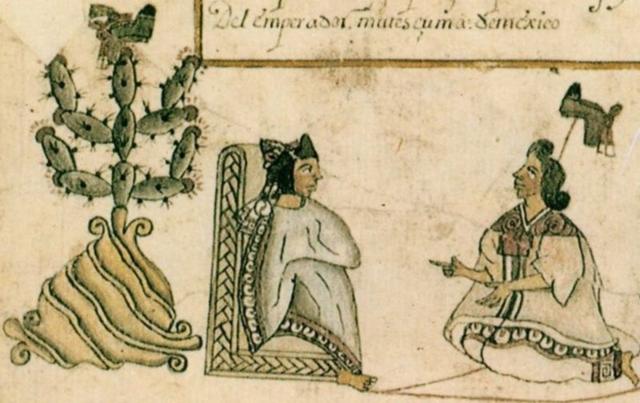 Del emperador, mutescuma: de mexico